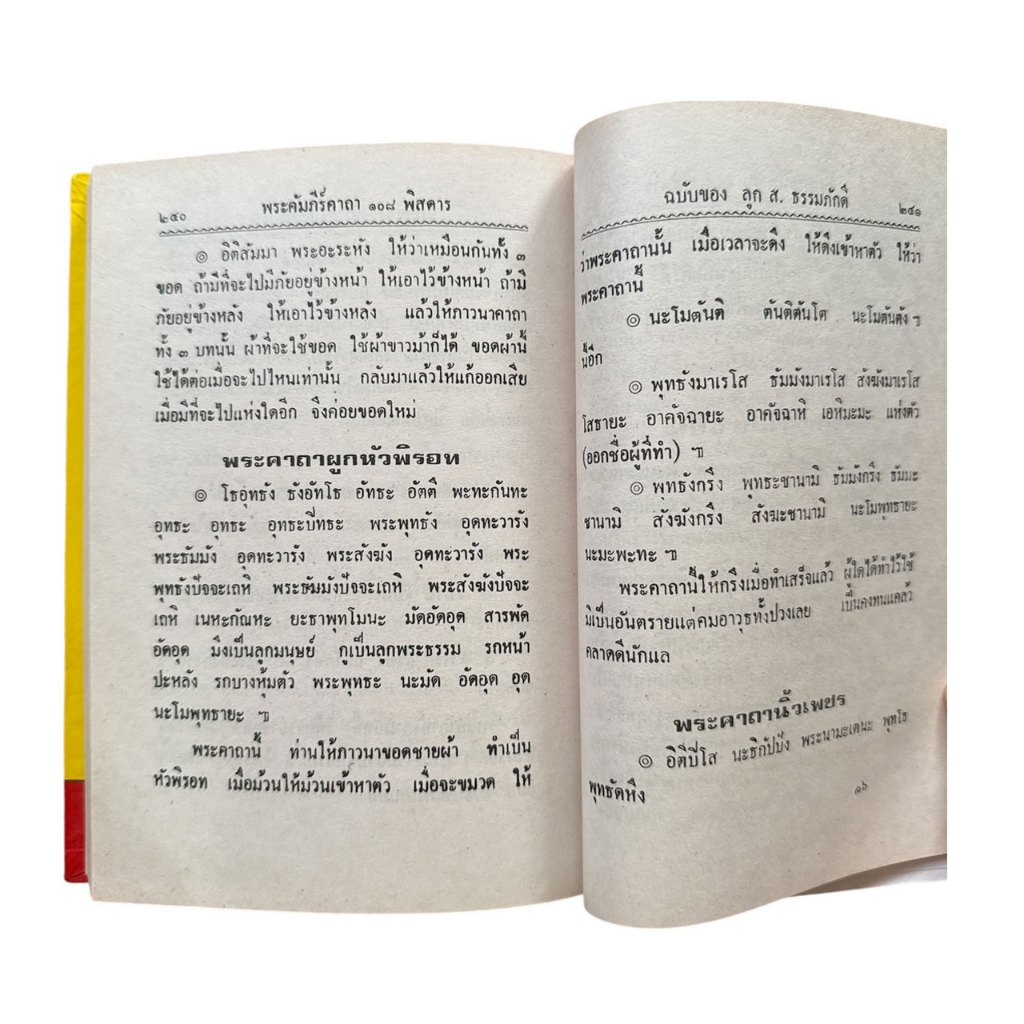 ๒๔๐ พระคัมภีร์คาถา ๑๐๘ พิสดาร
๏ อิติสัมมา พระอะระหัง ให้ว่าเหมือนกันทั้ง ๓
ขอด ถ้ามีที่จะไปมีภัยอยู่ข้างหน้า ให้เอาไว้ข้างหน้า ถ้ามี
ภัยอยู่ข้างหลัง ให้เอาไว้ข้างหลัง แล้วให้ภาวนาคาถา
ทั้ง ๓ บทนั้น ผ้าที่จะใช้ขอด ใช้ผ้าขาวม้าก็ได้ ขอดผ้านี้
ใช้ได้ต่อเมื่อจะไปไหนเท่านั้น กลับมาแล้วให้แก้ออกเสีย
เมื่อมีที่จะไปแห่งใดอีก จึงค่อยขอดใหม่
พระคาถาผูกหัวพิรอท
๏ โธอุทธัง ธังอัทโธ อัทธะ อัตตี พะทะกันทะ
อุทธะ อุทธะ อุทธะปีทธะ พระพุทธัง อุดทะวารัง
พระธัมมัง อุดทะวารัง พระสังฆัง อุดทะวารัง พระ
พุทธังปัจจะเถหิ พระธัมมังปัจจะเถหิ พระสังฆังปัจจะ
เถหิ เนหะกัณหะ ยะธาพุทโมนะ มัดอัดอุด สารพัด
อัดอุด มึงเป็นลูกมนุษย์ กูเป็นลูกพระธรรม รกหน้า
ปะหลัง รกบางหุ้มตัว พระพุทธะ นะมัด อัดอุด อุด
นะโมพุทธายะ ฯ
พระคาถานี้ ท่านให้ภาวนาขอดชายผ้า ทำเป็น
หัวพิรอท เมื่อม้วนให้ม้วนเข้าหาตัว เมื่อจะขมวด ให้
ฉบับของ ลูก ส. ธรรมภักดี ๒๔๑
ว่าพระคาถานั้น เมื่อเวลาจะดึง ให้ดึงเข้าหาตัว ให้ว่า
พระคาถานี้
๏ นะโมตันติ ตันติตันโต นะโมตันตัง ฯ
นี้อีก
๏ พุทธังมาเรโส ธัมมังมาเรโส สังฆังมาเรโส
โสธายะ อาคัจฉายะ อาคัจฉาหิ เอหิมะมะ แห่งตัว
(ออกชื่อผู้ที่ทำ) ฯ
๏ พุทธังกรึง พุทธะชานามิ ธัมมังกรึง ธัมมะ
ชานามิ สังฆังกรึง สังฆะชานามิ นะโมพุทธายะ
นะมะพะทะ ฯ
พระคาถานี้ให้กรึงเมื่อทำเสร็จแล้ว ผู้ใดได้ทำไว้ใช้
มิเป็นอันตรายแต่คมอาวุธทั้งปวงเลย เป็นคงทนแคล้ว
คลาดดีนักแล
พระคาถานิ้วเพชร
๏ อิติปิโส นะธิกัปปัง พระนามะเตนะ พุทโธ
พุทธัดหิง
๑๖